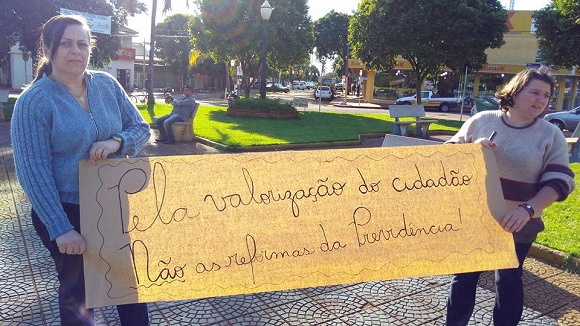 Pela valorização do cidadão
Não as reformas da Previdência!